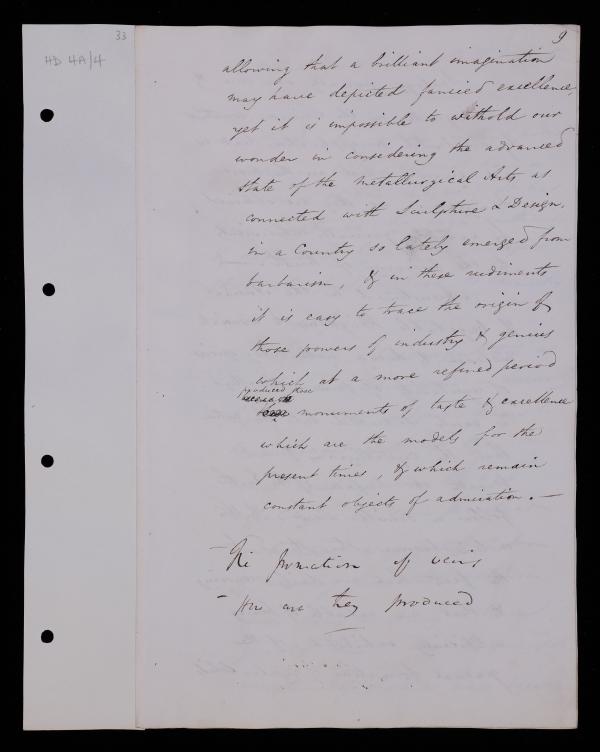 33
HD 4A/4
9
allowing that a brilliant imagination
may have depicted fancied excellence,
yet it is impossible to withold our
wonder in considering the advanced
state of the Metallurgical Arts as
connected with Sculpture & Design,
in a Country so lately emerged from
barbarism, & in these rudiments
it is easy to trace the origin of
those powers of industry & genius
which at a more refined period
produced those
monuments of taste & excellence
which are the models for the
present times, & which remain
constant objects of admiration. —
formation of veins
How are they produced